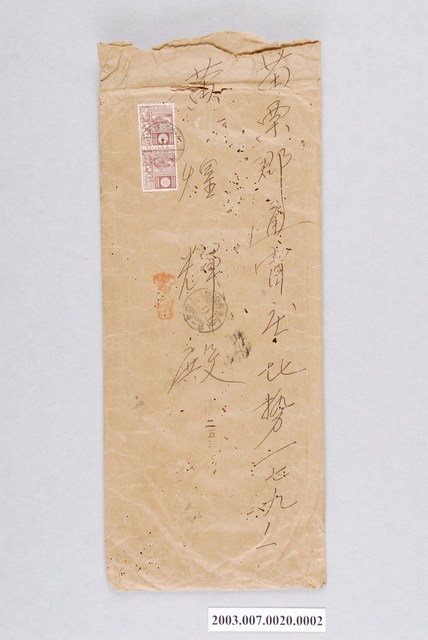 苗栗郡通霄庄北勢一七九ノ一
黃煌輝殿
書留
二五
2003.007.0020.0002